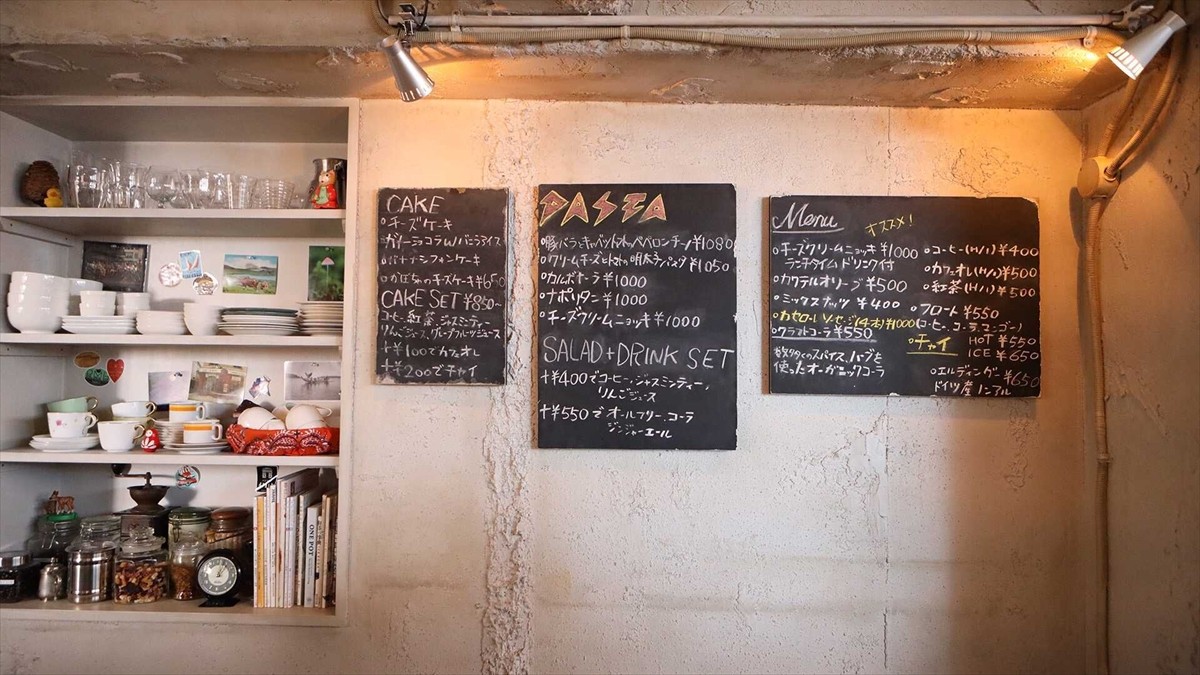 CAKE
○チーズケーキ
○ガトーショコラw/バニラアイス
○バナナシフォンケーキ
○かぼちゃのチーズケーキ¥650
CAKE SET ¥850~
コーヒー、紅茶、ジャスミンティー
りんごジュース、グレープフルーツジュース
+¥100でカフェオレ
+¥200でチャイ
PASTA
○豚バラとキャベツトマトのペペロンチーノ¥1080
○クリームチーズとトマトの明太子パスタ¥1050
○カルボナーラ ¥1000
○ナポリタン ¥1000
○チーズクリームニョッキ ¥1000
SALAD+DRINK SET
+¥400でコーヒー、ジャスミンティー、
りんごジュース
+¥550で オールフリー、コーラ
ジンジャーエール
Menu
オススメ!
○チーズクリームニョッキ ¥1000
ランチタイムドリンク付
○カクテルオリーブ ¥500
○ミックスナッツ ¥400
○カセロールソーセージ(4本)¥1000
○クラフトコーラ ¥550
数多くのスパイス、ハーブを
使ったオーガニックコーラ
○コーヒー(H/I) ¥400
○カフェオレ(H/I) ¥500
○紅茶(H/I) ¥500
○フロート ¥550
(コーヒー、コーラ、マンゴー)
○チャイ HOT ¥550
ICE ¥650
○エルディンガー ¥650
ドイツ産ノンアル
ONE POT